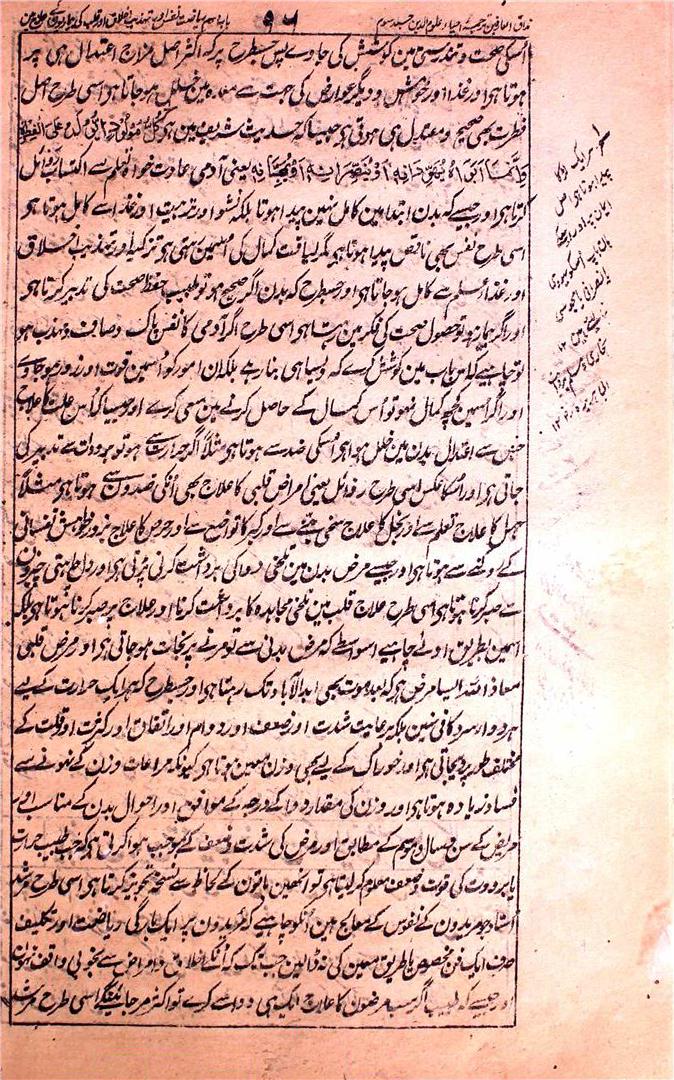 مذاق العارفین ترجمۂ احیاء علوم الدین جلد سوم
۹۶
باب دوم ریاضت نفس اور تہذیب اخلاق اور قلب کی بیماریوں کے علاج میں
اسکی صحت و تندرستی مین کوشش کی جاوے پس جسطرح پر کہ اکثر اصل مزاج اعتدال ہی پر
ہوتا ہی اور غذا اور خواہش و دیگر عوارض کی جہت سے معدہ مین خلل ہو جاتا ہی اسی طرح اصل
فطرت بھی صحیح و معتدل ہی ہوتی ہی جیسا کہ حدیث شریف مین ہی کُلُّ مَوْلُوْدٍ یُّوْلَدُ عَلَی الْفِطْرَۃِ
وَاِنَّمَا اَبَوَاہُ یُهَوِّدَانِهٖ اَوْ یُنَصِّرَانِهٖ اَوْ یُمَجِّسَانِهٖ یعنی آدمی عادت خواہ تعلم سے اکتساب رذائل
کرتا ہی اور جیسے کہ بدن ابتدا مین کامل نہین پیدا ہوتا بلکہ نشو اور تربیت اور غذا سے کامل ہوتا ہی
اسی طرح نفس بھی ناقص پیدا ہوتا ہی مگر لیاقت کمال کی اسمین ہوتی ہی تزکیہ اور تہذیب اخلاق
اور غذاء علم سے کامل ہو جاتا ہی اور جسطرح کہ بدن اگر صحیح ہو تو طبیب حفظ صحت کی تدبیر کرتا ہی
اور اگر بیمار ہو تو حصول صحت کی فکر مین رہتا ہی اسی طرح اگر آدمی کا نفس پاک و صاف و مہذب ہو
تو چاہیے کہ اس باب مین کوشش کرے کہ ویسا ہی بنا رہے بلکہ ان امور کو اسمین قوت اور زور ہو جاوے
اور اگر اسمین کچھ کمال نہو تو اُس کمال کے حاصل کرنے مین سعی کرے اور جیسا کہ اُس علت کا علاج
جس سے اعتدال بدن مین خلل ہوا ہی اسکی ضد سے ہوتا ہی مثلاً اگر حرارت سے ہو تو برودت سے تدبیر کی
جاتی ہی اور اسکا عکس اسی طرح رذائل یعنی امراض قلبی کا علاج بھی اُنکی ضدون سے ہوتا ہی مثلاً
جہل کا علاج تعلم سے اور بخل کا علاج سخی بننے سے اور کبر کا تواضع سے اور حرص کا علاج بزور خواہش نفسانی
کے روکنے سے ہوتا ہی اور جیسے مرض بدن مین تلخی دوا کی برداشت کرنی پڑتی ہی اور دل چاہتی چیزون
سے صبر کرنا ہوتا ہی اسی طرح علاج قلب مین تلخی مجاہدہ کا برداشت کرنا اور علاج پر صبر کرنا ہوتا ہی بلکہ
اسمین بطریق اولے چاہیے اسواسطے کہ مرض بدنی سے تو مرنے پر نجات ہو جاتی ہی اور مرض قلبی
معاذ اللہ ایسا مرض ہی کہ بعد موت بھی ابد الآباد تک رہتا ہی اور جسطرح کہ ہر ایک حرارت کے لیے
ہر دوا سرد کافی نہین بلکہ برعایت شدت اور ضعف اور دوام اور اتفاق اور کثرت اور قلت کے
مختلف طور پر دیجاتی ہی اور خوراک کے لیے بھی وزن معین ہوتا ہی کیونکہ مراعات وزن کے نہونے سے
فساد زیادہ ہوتا ہی اور وزن کی مقدار دوا کے درجہ کے موافق اور احوال بدن کے مناسب اور
مریض کے سن و سال و موسم کے مطابق اور مرض کی شدت و ضعف کے بموجب ہوا کرتی ہی کہ جب طبیب حرارت
یا برودت کی قوت و ضعف معلوم کر لیتا ہی تو انھین باتون کے لحاظ سے نسخہ تجویز کرتا ہی اسی طرح مرشد
استاد جو مریدون کے نفوس کے معالج ہین اُنکو چاہیے کہ مریدون پر ایک بارگی ریاضت اور تکلیف
صرف ایک فن مخصوص یا طریق معین کی نہ ڈالین جب تک کہ اُنکے اخلاق و امراض سے بخوبی واقف نہون
اور جیسے کہ طبیب اگر سب مریضون کا علاج ایک ہی دوا سے کرے تو اکثر مر جائینگے اسی طرح مرشد
ہر ایک لڑکا
پیدا ہوتا ہی اصل
ایمان پر اور اسکے
مان باپ اسکو یہودی
یا نصرانی یا مجوسی
بنا لیتے ہین ۱۲
بخاری و مسلم بروایت
ابی ہریرہ ۱۲